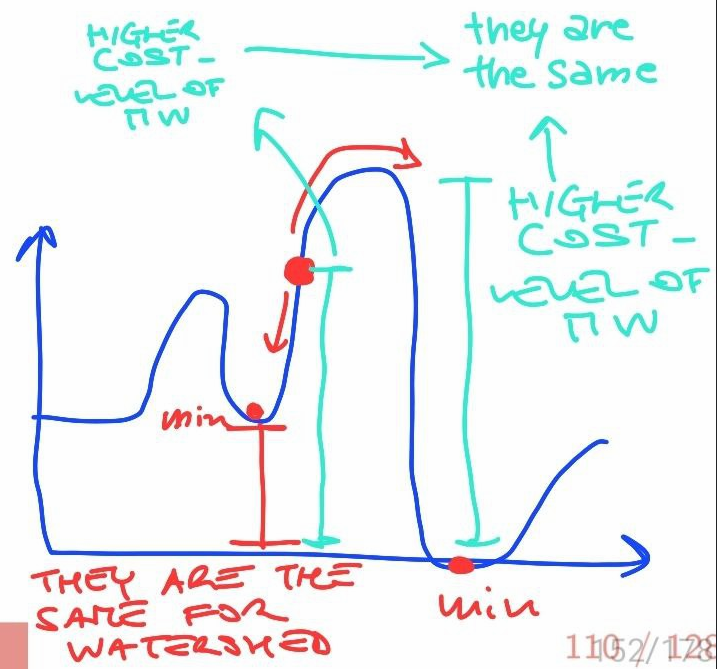 HIGHER
COST -
LEVEL OF
MW
they are
the same
HIGHER
COST -
LEVEL OF
MW
min
THEY ARE THE
SAME FOR
WATERSHED
min
110 / 128
152/178